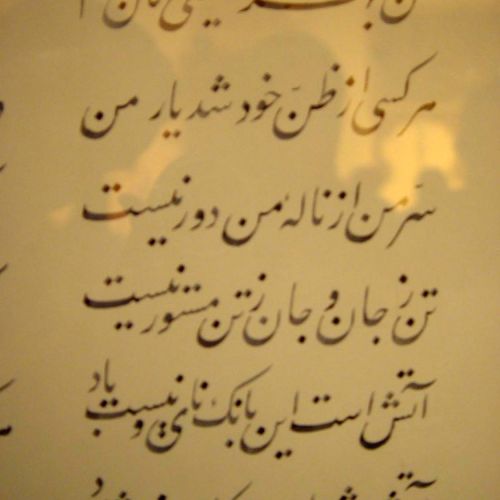 هر کسی از ظنّ خود شد یار من
سرّ من از نالهٔ من دور نیست
تن ز جان و جان ز تن مستور نیست
آتش است این بانگ نای و نیست باد